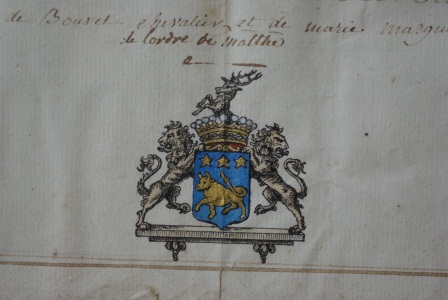 de Bouvet chevalier et de marie marqu
de lordre de malthe